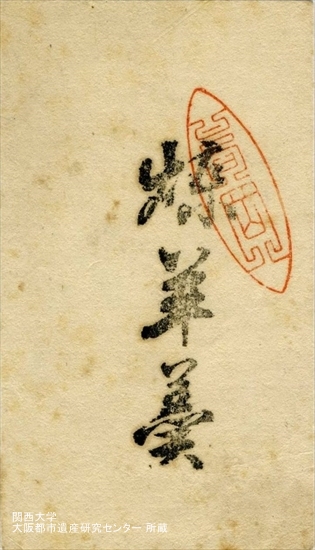 煉羊羹
関西大学
大阪都市遺産研究センター 所蔵